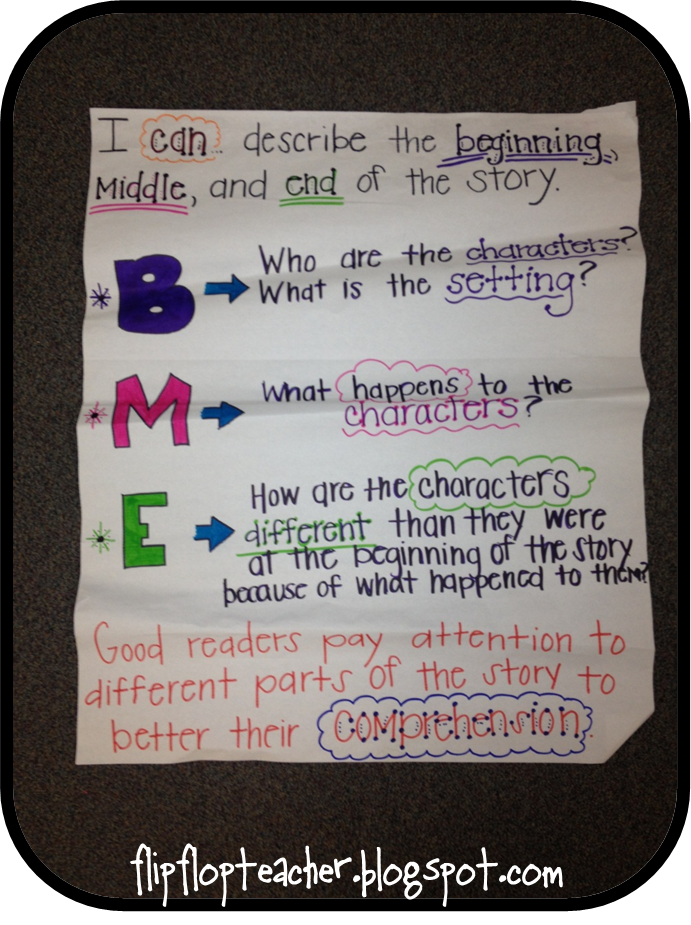 I can describe the beginning,
Middle, and end of the story.
* B → Who are the characters?
What is the setting?
* M → What happens to the
characters?
* E → How are the characters
different than they were
at the beginning of the story
because of what happened to them?
Good readers pay attention to
different parts of the story to
better their comprehension.
flipflopteacher.blogspot.com